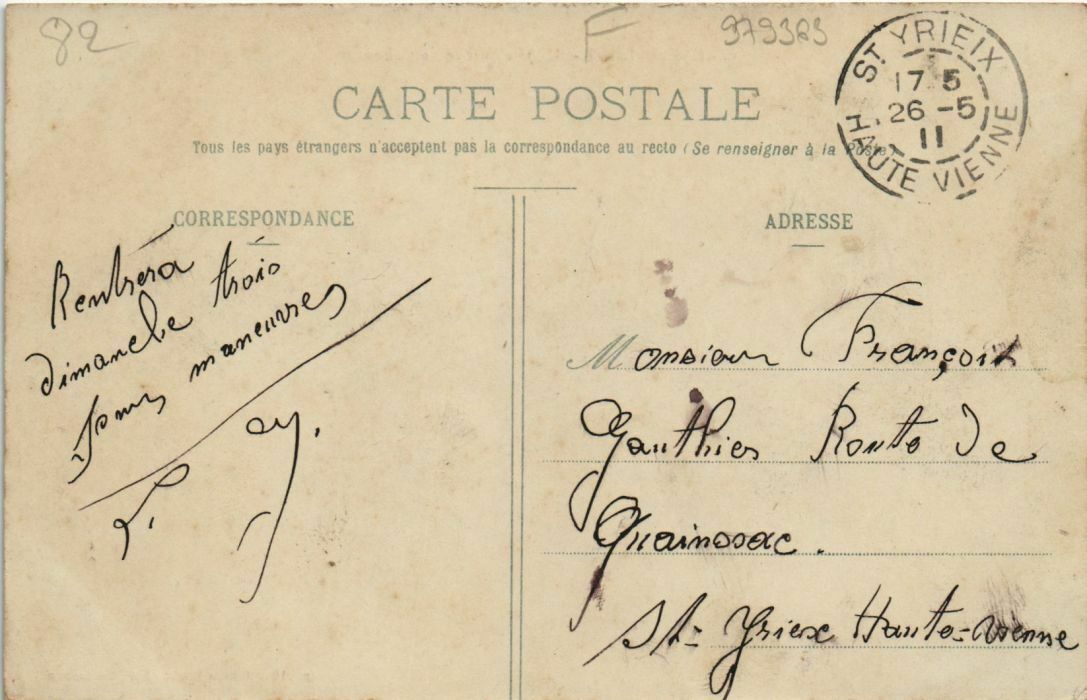 82
F
979363
CARTE POSTALE
Tous les pays étrangers n'acceptent pas la correspondance au recto (Se renseigner à la Poste)
ST YRIEIX
17 5
26 -5
11
HAUTE VIENNE
CORRESPONDANCE
Rentrera
dimanche trois
jours maneuvres
ADRESSE
Monsieur François
Gauthier Route De
Quainssac.
St- Yriex Haute-vienne